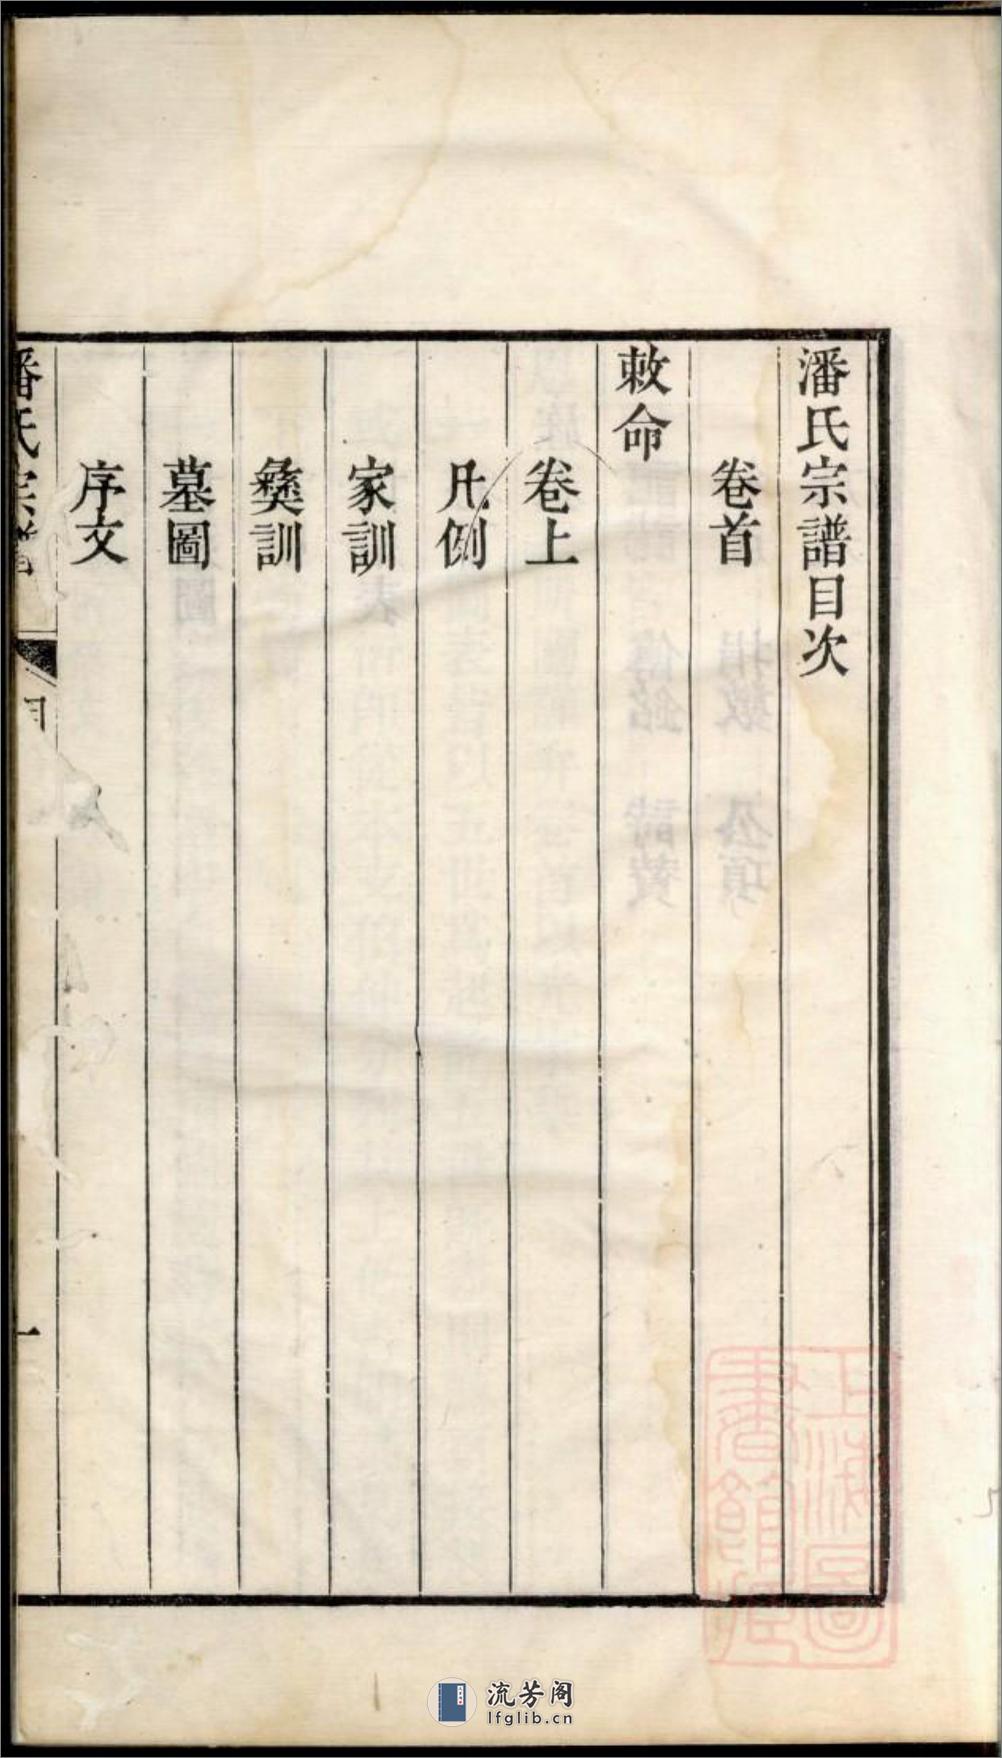 潘氏宗譜目次
卷首
敕命
卷上
凡例
家訓
彝訓
墓圖
序文
潘氏宗譜
目
一
上海圖
書館藏
流芳阁
lfglib.cn